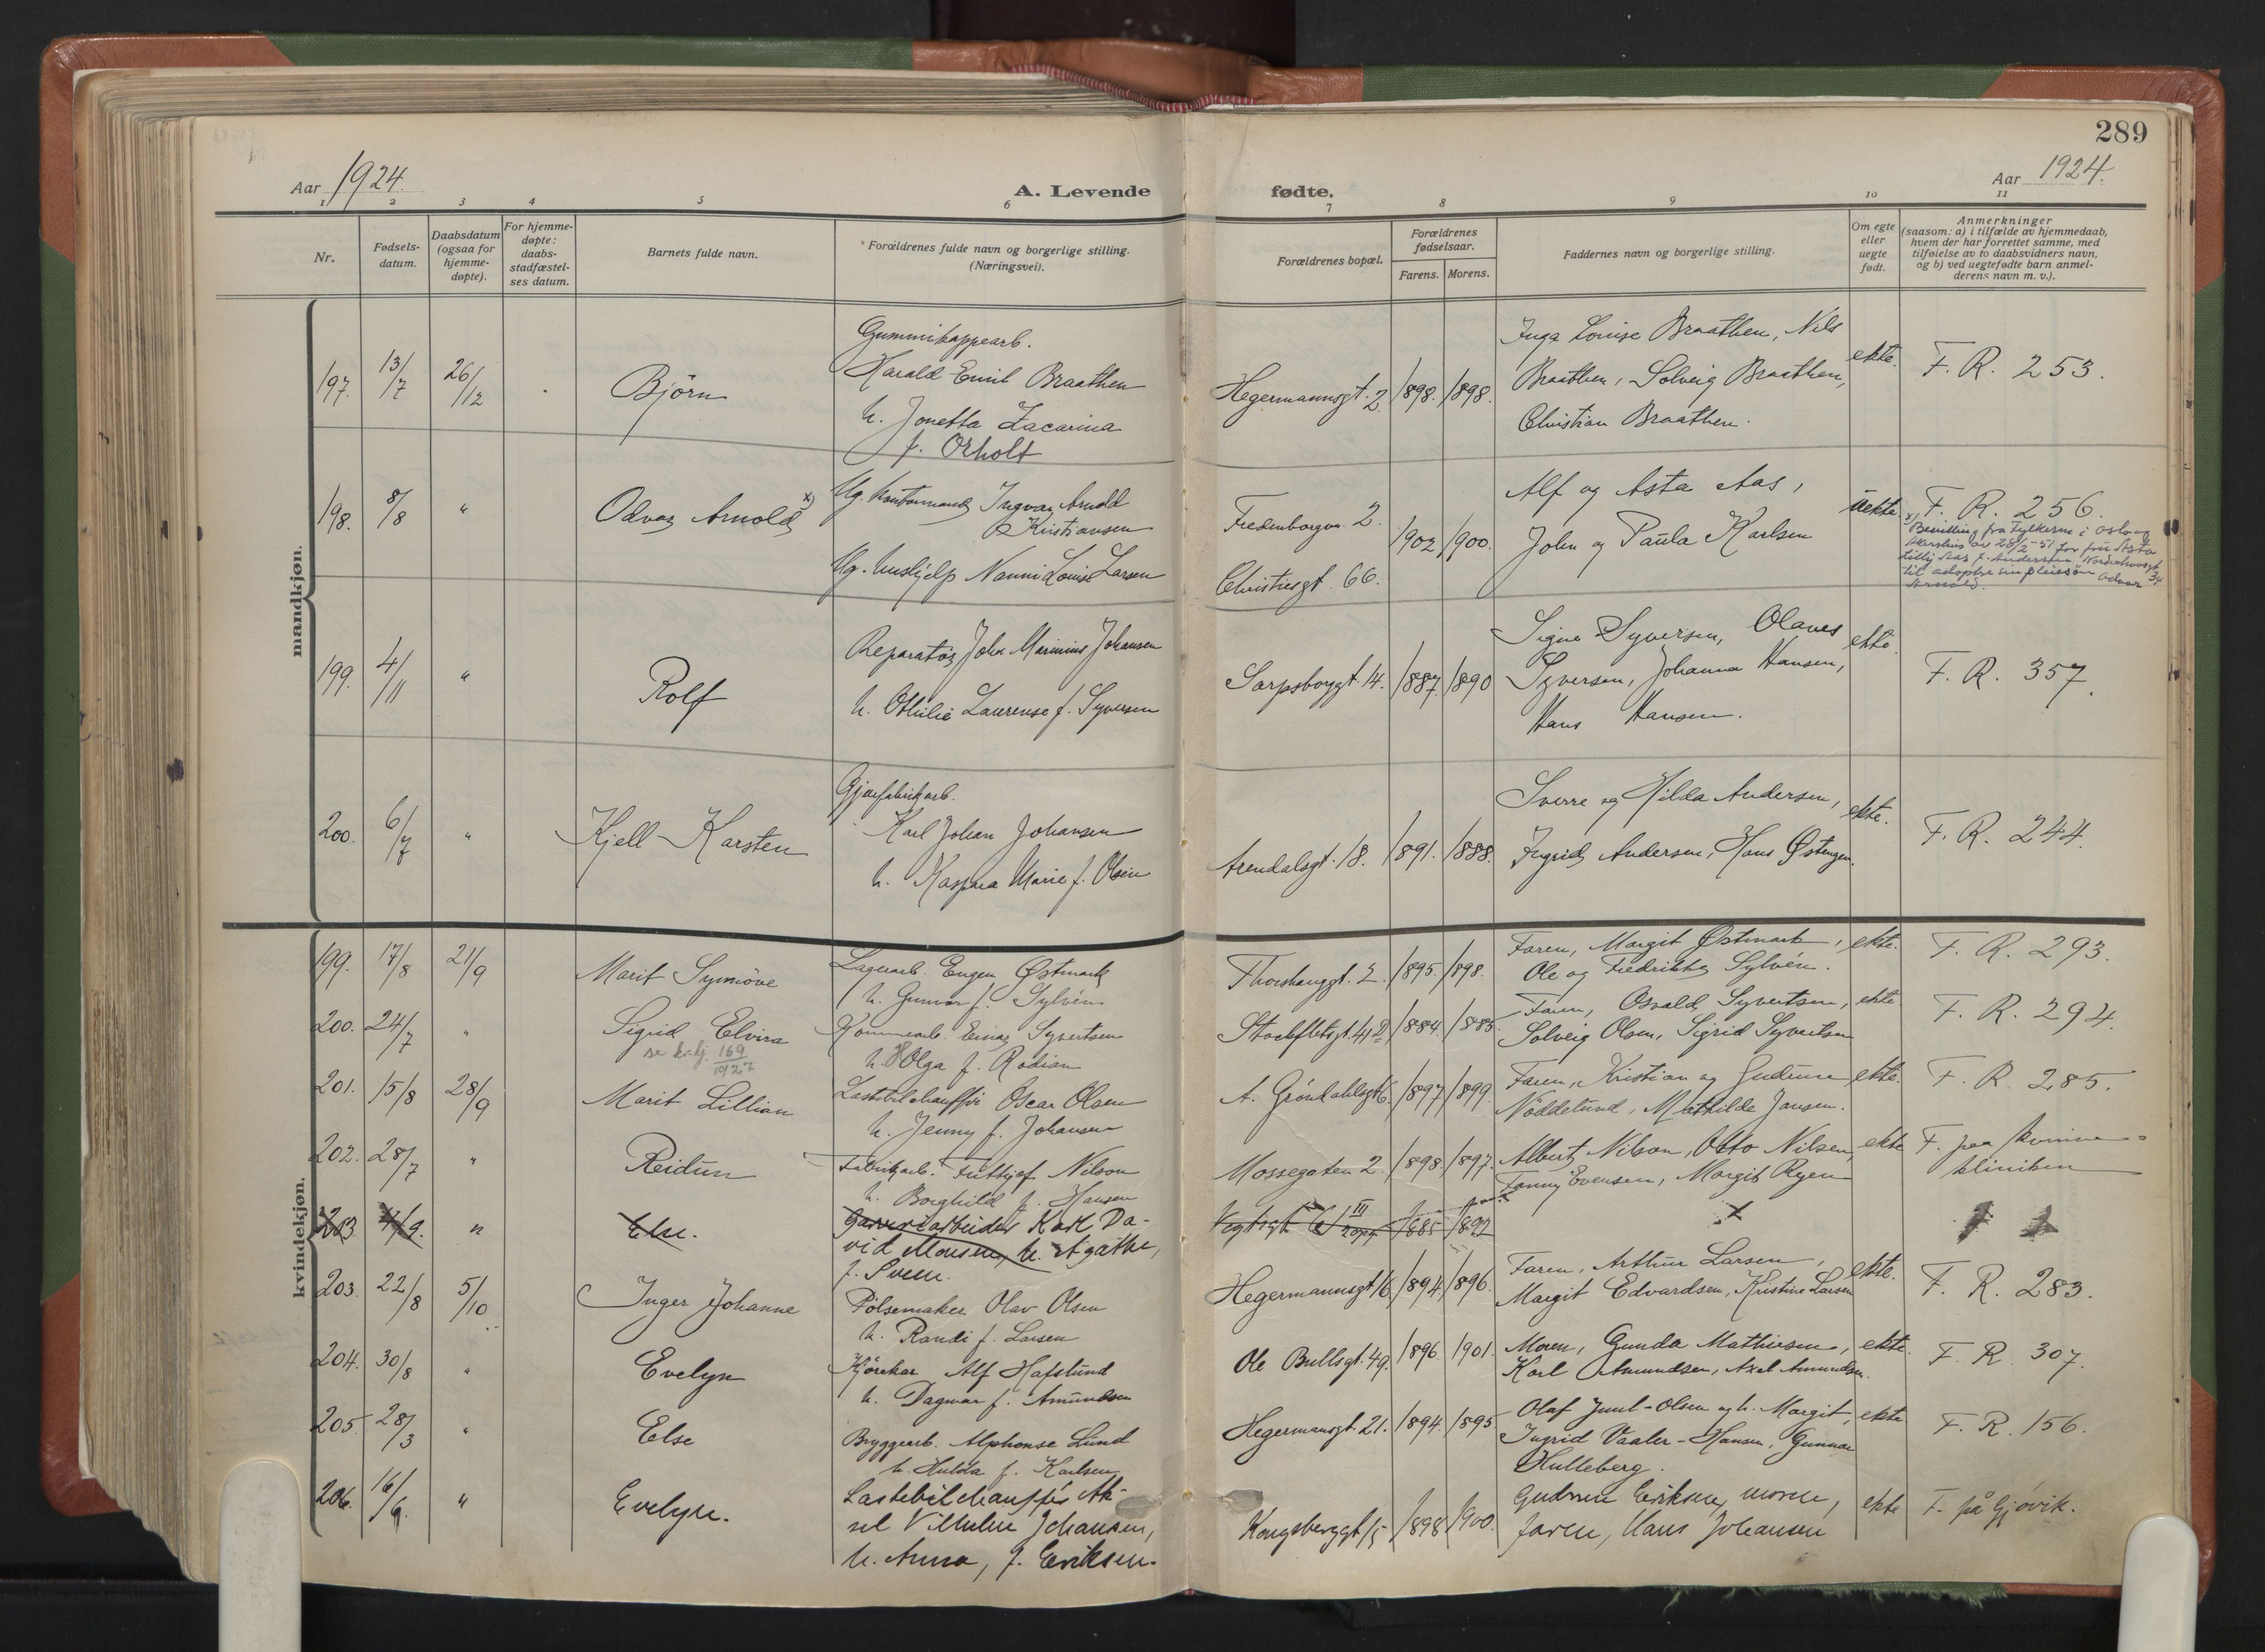 289
Aar 1924.
A. Levende
fødte.
Aar 1924.
1 2 3 4 5 6 7 8 9 10 11
Nr.
Fødsels-
datum.
Daabsdatum
(ogsaa for
hjemme-
døpte).
For hjemme-
døpte:
daabs-
stadfæstel-
ses datum.
Barnets fulde navn.
Forældrenes fulde navn og borgerlige stilling.
(Næringsvei).
Forældrenes bopæl.
Forældrenes
fødselsaar.
Farens. Morens.
Faddernes navn og borgerlige stilling.
Om egte
eller
uegte
født.
Anmerkninger
(saasom: a) i tilfælde av hjemmedaab,
hvem der har forrettet samme, med
tilføielse av to daabsvidners navn,
og b) ved uegtefødte barn anmel-
derens navn m. v.).
mandkjøn.
197. 13/7 26/12 Björn
Gummikappearb.
Harald Emil Braathen
h. Jonetta Zacarina
f. Orholt
Hegermannsgt. 2. 1898. 1898.
Inga Louise Braathen, Nils
Braathen, Solveig Braathen,
Christian Braathen.
ekte. F. R. 253.
198. 8/8 " Odvar Arnold x)
Ug. Kontormand Ingvar Arnold
Kristiansen
Ug. hushjelp Nanni Louise Larsen
Fredenborgvn. 2.
Christiesgt. 66.
1902 1900.
Alf og Asta Aas,
John og Paula Karlsen
uekte. F. R. 256.
x) Bevilling fra Fylkesm. i Oslo og
Akershus av 28/2-51 for fru Asta
Lilly Aas f. Andersen Nordahlsgt 34
til adoptere sin pleiesön Odvar
Arnold.
199. 4/11 " Rolf
Reparatör John Marinius Johansen
h. Othilie Laurense f. Syversen
Sarpsborggt. 14. 1887 1890
Signe Syversen, Olaves
Syversen, Johanna Hansen,
Hans Hansen.
ekte. F. R. 357.
200. 6/7 " Kjell Karsten
Gjærfabrikarb.
Karl Johan Johansen
h. Kaspara Marie f. Olsen
Arendalsgt. 18. 1891. 1888.
Sverre og Hilda Andersen,
Ingrid Andersen, Hans Østengen.
ekte. F. R. 244.
kvindekjøn.
199. 17/8 21/9 Marit Synnöve
Lagerarb. Eugen Østmark
h. Gunvor f. Sylvén
Thorshauggt. 2. 1895. 1898.
Faren, Margit Østmark,
Ole og Fredrikke Sylvén.
ekte. F. R. 293.
200. 24/7 " Sigrid Elvira
se k.bj. 169/1927
Kommunearb. Einar Syvertsen
h. Olga f. Rodian
Stockfletsgt. 41 1884. 1885.
Faren, Osvald Syvertsen,
Solveig Olsen, Sigrid Syvertsen
ekte. F. R. 294.
201. 15/8 28/9 Marit Lillian
Lastebilchaufför Oscar Olsen
h. Jenny f. Johansen
A. Gröndahlsgt 6. 1897 1899.
Faren, Kristian og Gudrun
Nöddelund, Mathilde Jansen.
ekte. F. R. 285.
202. 28/7 " Reidun
Fabrikarb. Fritthjof Nilsen
h. Borghild f. Hansen
Mossegaten 2. 1898. 1897.
Albert Nilson, Otto Nilsen,
Fanny Evensen, Margit Ryen
ekte F. paa kvinne-
kliniken
203 4/9. " Else.
Garveriarbeider Karl Da-
vid Monsen, h. Agathe,
f. Sveen.
III 1885 1892
203. 22/8 5/10 Inger Johanne
Pölsemaker Olav Olsen
h. Randi f. Larsen
Hegermannsgt 16. 1894. 1896.
Faren, Arthur Larsen,
Margit Edvardsen, Kristine Larsen
ekte. F. R. 283.
204. 30/8 " Evelyn
Kjörekar Alf Hafslund
h. Dagmar f. Amundsen
Ole Bullsgt. 49. 1896. 1901.
Moren, Gunda Mathiesen,
Karl Amundsen, Axel Amundsen.
ekte. F. R. 307.
205. 28/3 " Else
Bryggearb. Alphonse Lund
h. Hulda f. Karlsen
Hegermansgt. 21. 1894. 1895
Olaf Juul-Olsen og h. Margit,
Ingrid Vaaler-Hansen, Gunnar
Hulleberg.
ekte. F. R. 156.
206. 16/9. " Evelyn.
Lastebilchauffør Ak-
sel Vilhelm Johansen,
h. Anna, f. Eriksen.
Kongsberggt 15 1898 1900.
Gudrun Eriksen, moren,
faren, Hans Johansen
ekte F. på Gjøvik.